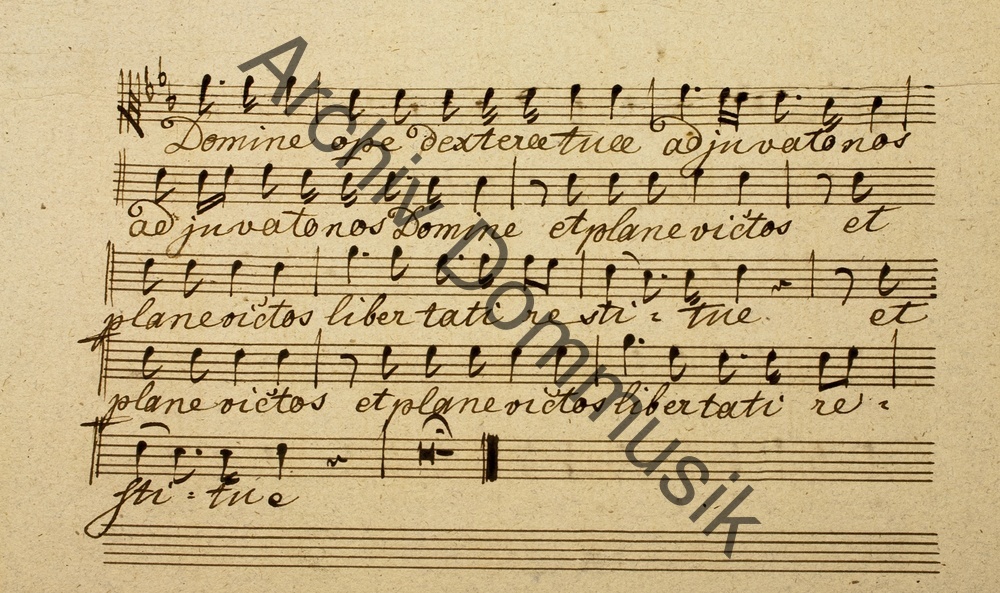 Domine ope dexteræ tuæ adjuvato nos
adjuvato nos Domine et plane victos et
plane victos libertati resti - tue et
plane victos et plane victos libertati re -
sti - tue
Archiv Dommusik